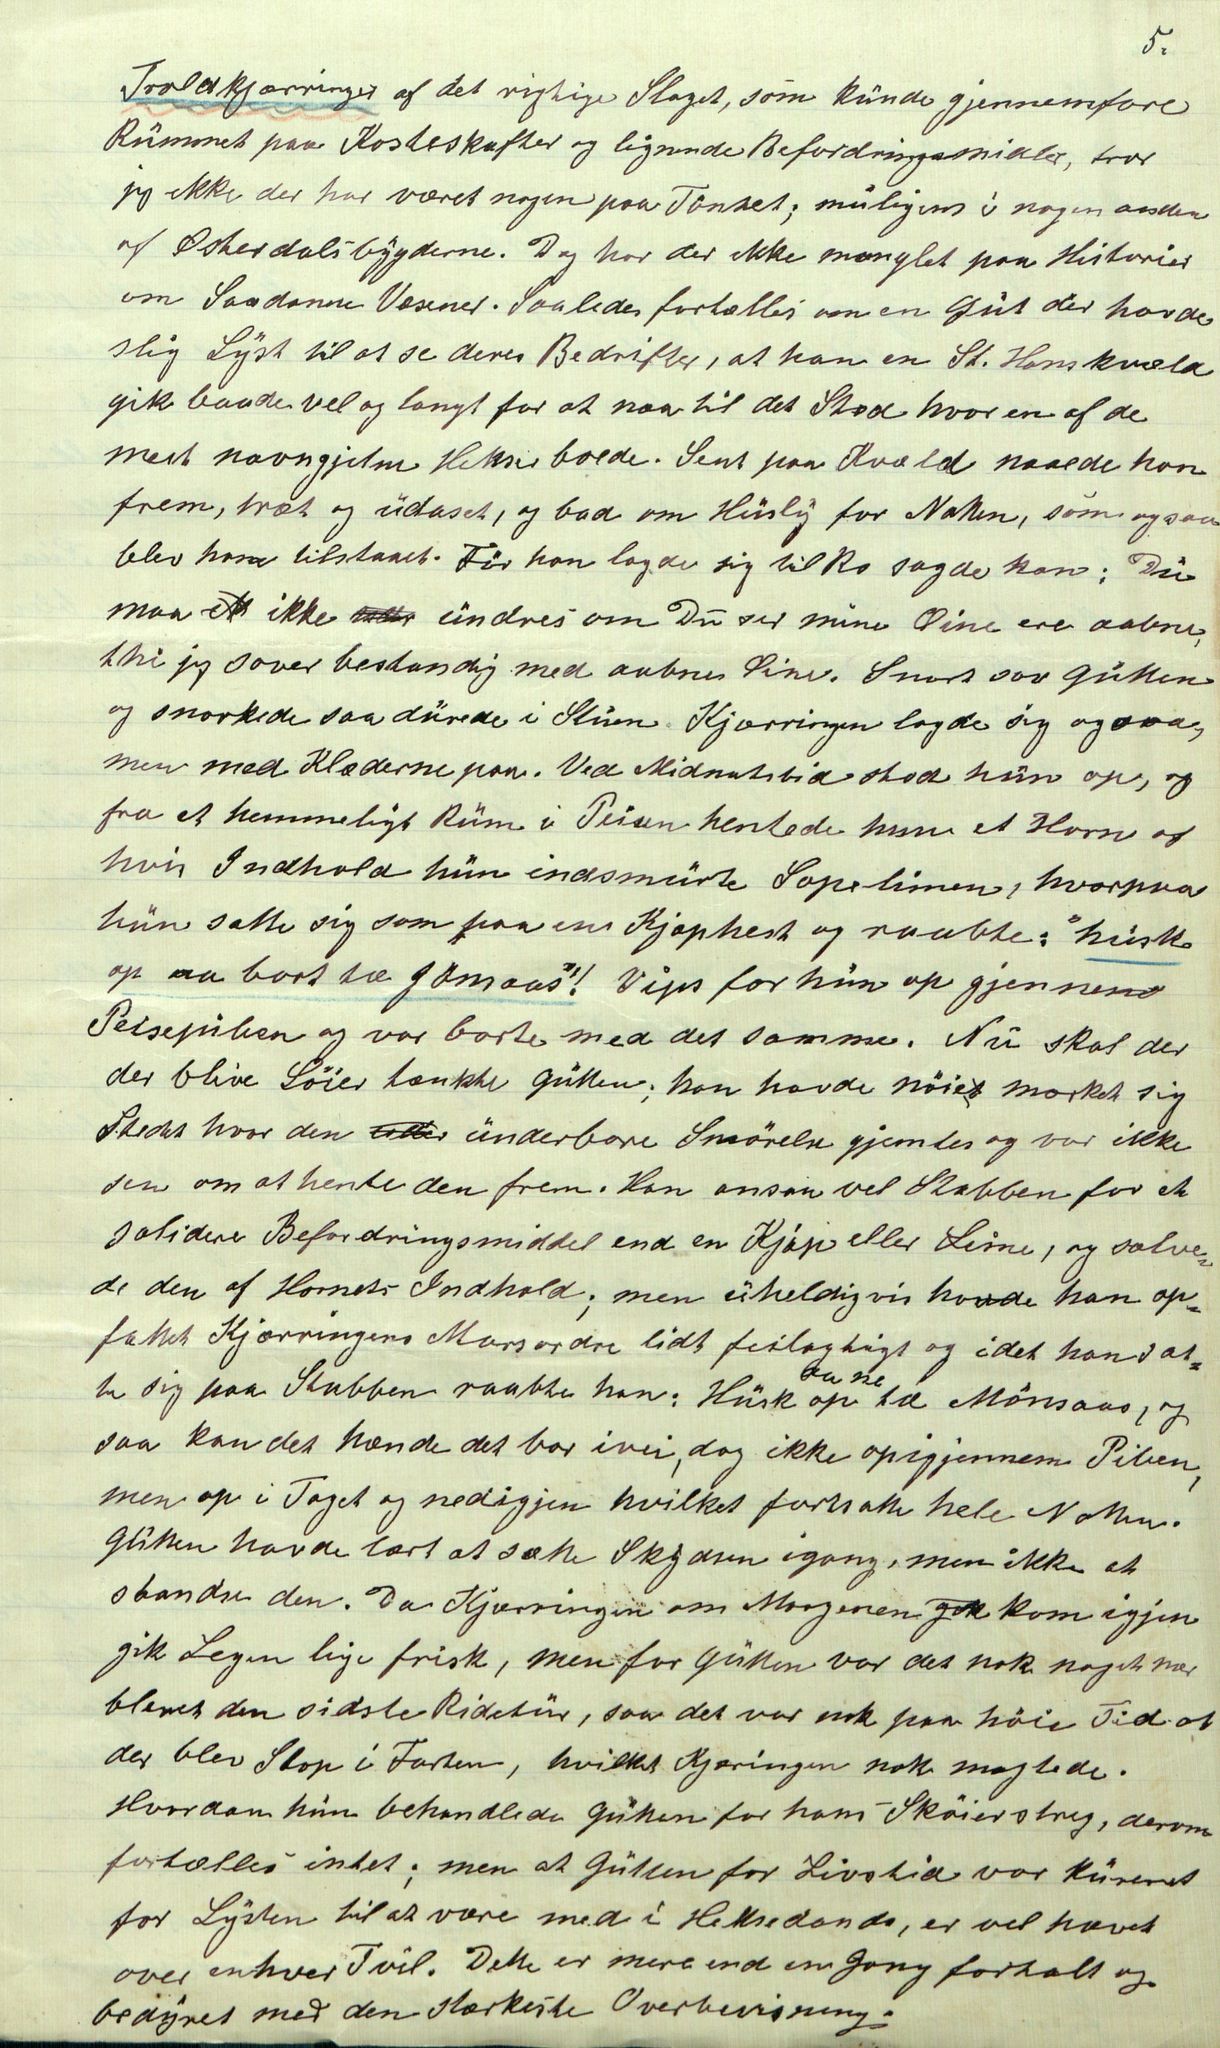 5.
Troldkjærringer af det rigtige Slaget, som kunde gjennemfare
Rummet paa Kosteskafter og lignende Befordringsmidler, tror
jeg ikke der har været nogen paa Tönset; muligens i nogen anden
af Østerdalsbygderne. Dog har der ikke manglet paa Historier
om Saadanne Væsener. Saaledes fortælles om en Gut der havde
slig Lyst til at se deres Bedrifter, at han en St. Hanskvæld
gik baade vel og langt for at naa til det Sted hvor en af de
mest navngjetne Hekser boede. Sent paa Kvæld naaede han
frem, træt og udaset, og bad om Husly for Natten, som ogsaa
blev ham tilstaaet. För han lagde sig til Ro sagde han: Du
maa ikke undres om Du ser mine Øine ere aabne,
thi jeg sover bestandig med aabne Øine. Snart sov Gutten
og snorkede saa durede i Stuen. Kjærringen lagde sig ogsaa,
men med Klæderne paa. Ved Midnatstid stod hun op, og
fra et hemmeligt Rum i Peisen hentede hun et Horn af
hvis Indhold hun indsmurte Sopelimen, hvorpaa
hun satte sig som paa en Kjæphest og raabte: "husk
op aa bort tæ Jömaas"! Vips for hun op gjennem
Peisepiben og var borte med det samme. Nu skal der
der blive Löier tænkte Gutten; han havde nöie mærket sig
Stedet hvor den underbare Smörelse gjemtes og var ikke
sen om at hente den frem. Han ansaa vel Stabben for et
solidere Befordringsmiddel end en Kjæp eller Lime, og salve-
de den af Hornets Indhold; men uheldigvis havde han op=
fattet Kjærringens Marsordre lidt feilagtigt og idet han sat=
te sig paa Stabben raabte han: Husk op aa ne tæ Mönsaas, og
saa kan det hænde det bar ivei, dog ikke opigjennem Piben,
men op i Taget og nedigjen hvilket fortsatte hele Natten.
Gutten havde lært at sætte Skydsen igang, men ikke at
standse den. Da Kjærringen om Morgenen kom igjen
gik Legen lige frisk, men for Gutten var det nok noget nær
blevet den sidste Ridetur, saa det var nok paa höie Tid at
der blev Stop i Farten, hvilket Kjæringen nok magtede.
Hvordan hun behandlede Gutten for hans Sköierstreg, derom
fortælles intet; men at Gutten for Livstid var kureret
for Lysten til at være med i Heksedands, er vel hævet
over enhver Tvil. Dette er mere end en Gang fortalt og
bedyret med den stærkeste Overbevisning.